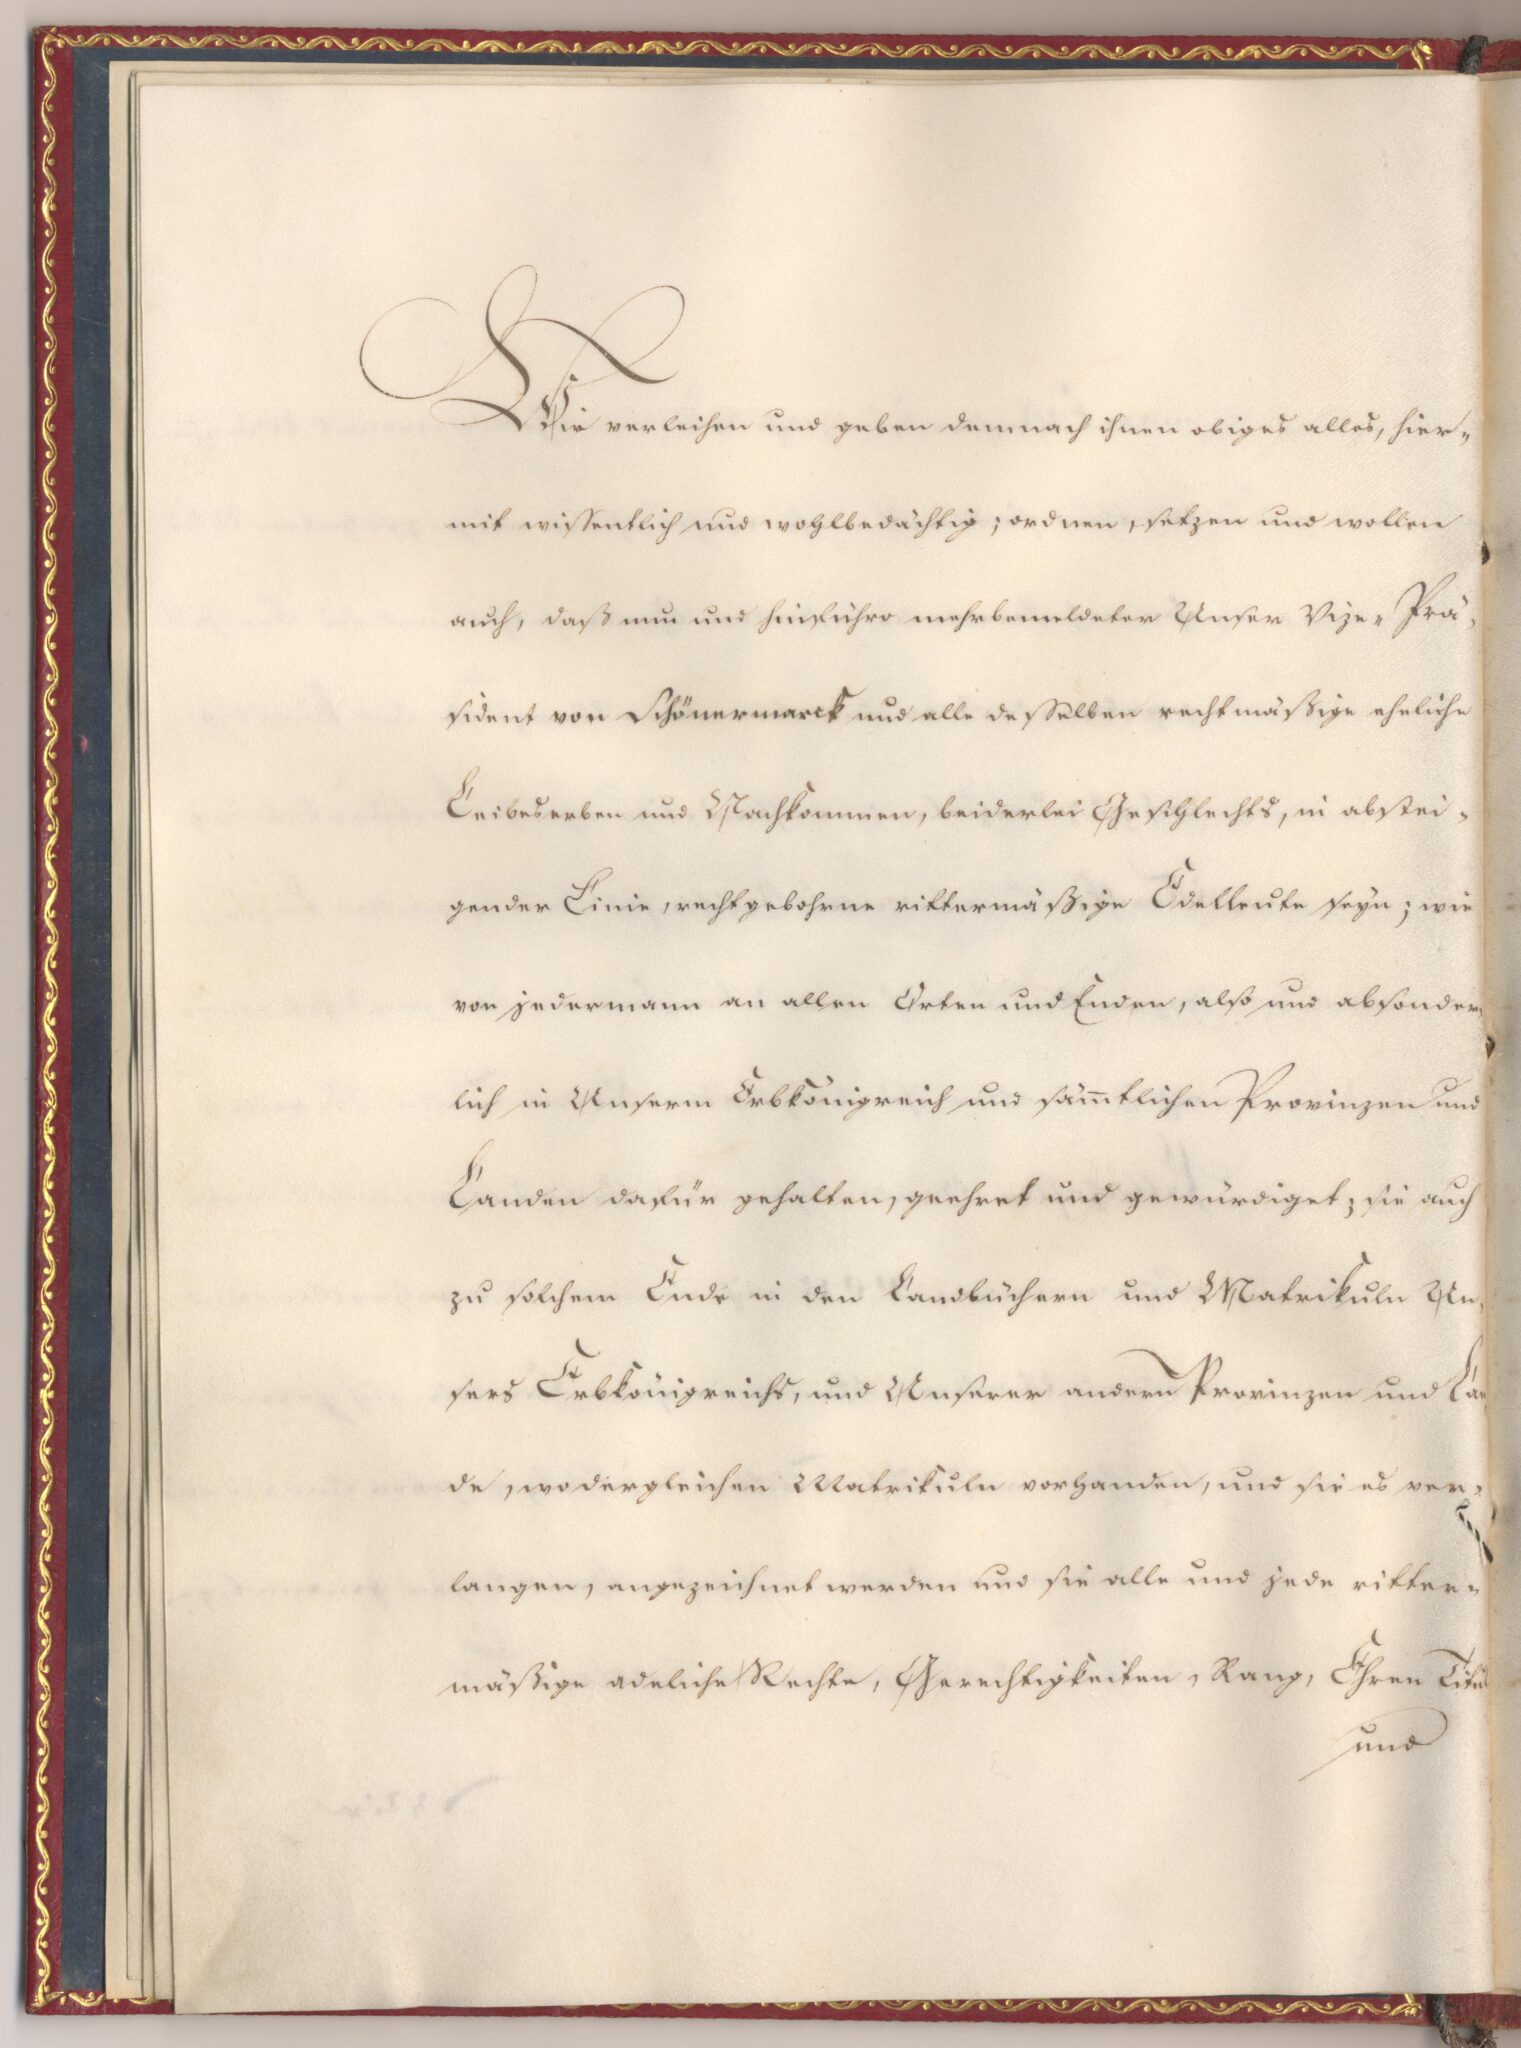 Wir verleihen und geben demnach ihnen obiges alles, hier-
mit wissentlich und wohlbedächtig; ordnen, setzen und wollen
auch, daß nun und hinführo mehrbemeldeter Unser Vize-Prä-
sident von Schönermarck und alle desselben rechtmäßige eheliche
Leibeserben und Nachkommen, beiderlei Geschlechts, in abstei-
gender Linie, rechtgebohrne rittermäßige Edelleute seyn; wie
von jedermann an allen Orten und Enden, also und absonder-
lich in Unserm Erbkönigreich und sämmtlichen Provinzen und
Landen dafür gehalten, geehret und gewürdiget; sie auch
zu solchem Ende in den Landbüchern und Matrikuln Un-
sers Erbkönigreichs, und Unserer andern Provinzen und Lan
de, wo dergleichen Matrikuln vorhanden, und sie es ver-
langen, angezeichnet werden und sie alle und jede ritter-
mäßige adeliche Rechte, Gerechtigkeiten, Rang, Ehren Titul
und